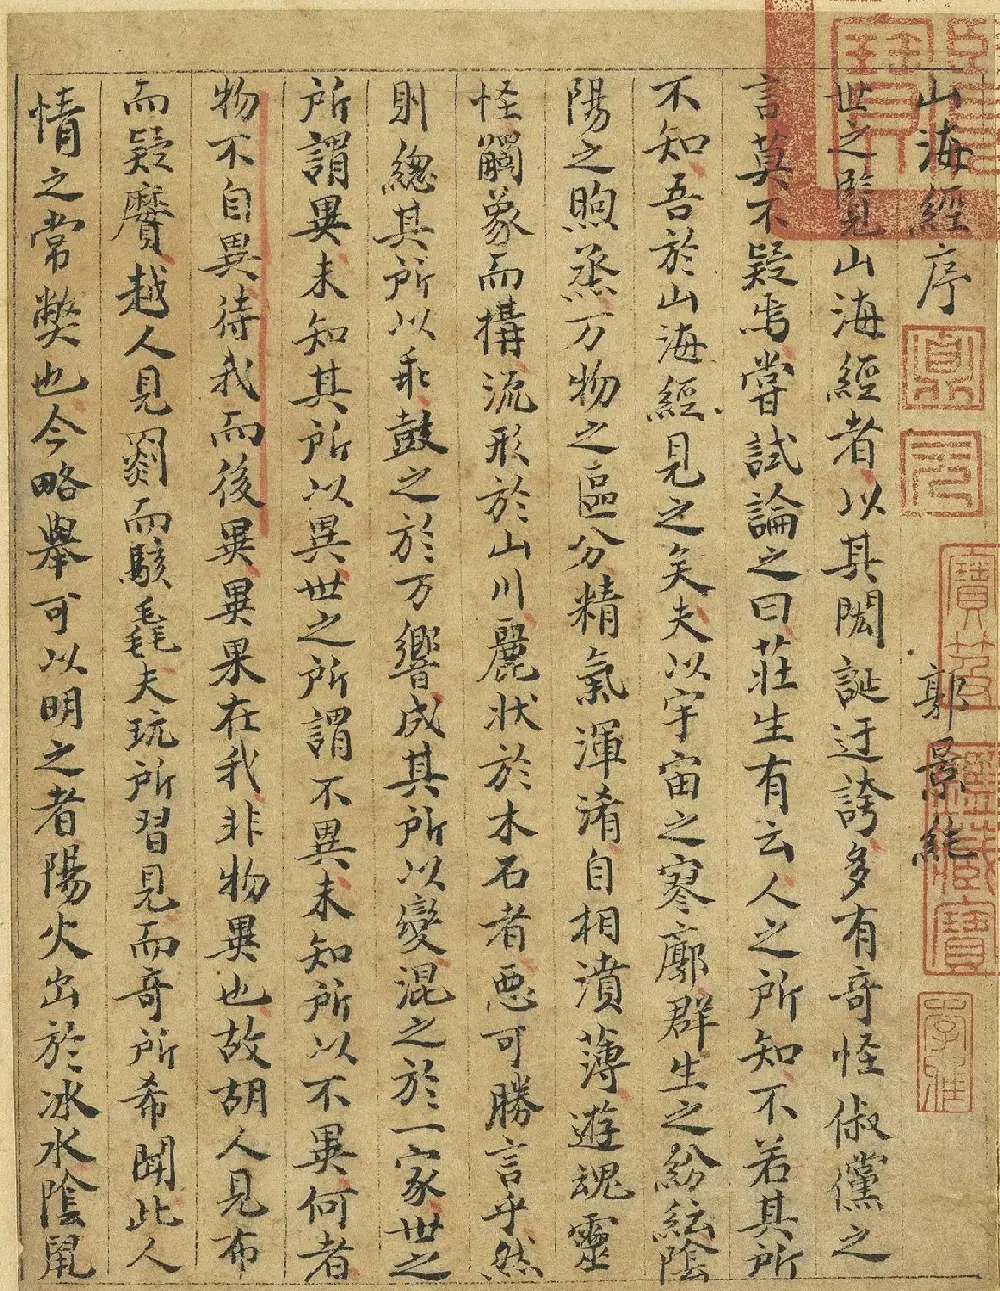 山海經序
郭景純
世之覽山海經者以其閎誕迂誇多有奇怪俶儻之
言莫不疑焉嘗試論之曰莊生有云人之所知不若其所
不知吾於山海經見之矣夫以宇宙之寥廓群生之紛紜陰
陽之煦烝万物之區分精氣渾淆自相濆薄遊魂靈
怪觸象而構流形於山川麗狀於木石者惡可勝言乎然
則緫其所以乖鼓之於万響成其所以變混之於一家世之
所謂異未知其所以異世之所謂不異未知所以不異何者
物不自異待我而後異異果在我非物異也故胡人見布
而疑黂越人見罽而駭毳夫玩所習見而奇所希聞此人
情之常獘也今略舉可以明之者陽火出於冰水陰鼠